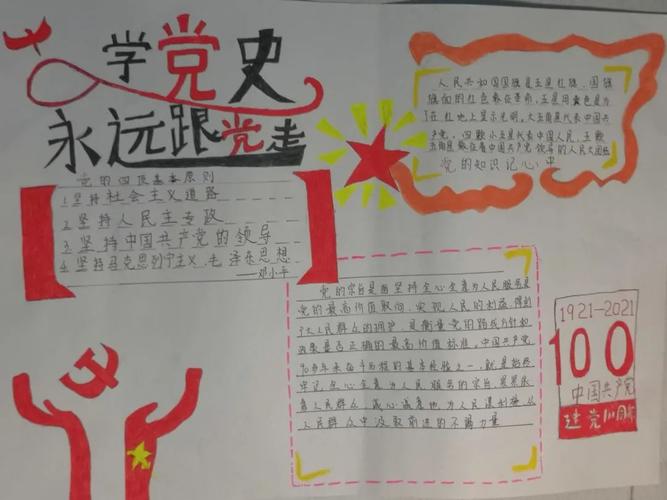 学党史
永远跟党走
党的四项基本原则
1.坚持社会主义道路
2.坚持人民主专政
3.坚持中国共产党的领导
4.坚持马克思列宁主义、毛泽东思想
——邓小平
人民共和国国旗是五星红旗，国旗
旗面的红色象征革命，五星用黄色是为
了在红地上显示光明，大五角星代表中国共
产党，四颗小五星代表中国人民，五颗
五角星象征着中国共产党领导的人民大团结
党的知识记心中
党的宗旨是坚持全心全意为人民服务是
党的最高价值取向，实现人民的利益，得到
广大人民群众的拥护，是衡量党的路线方针和
政策是否正确的最高价值标准，中国共产党
90多年来奋斗历程的基本经验之一，就是始终
牢记全心全意为人民服务的宗旨，紧紧依
靠人民群众，诚心诚意地为人民谋利益，从
人民群众中汲取前进的不竭力量
1921-2021
100
中国共产党
建党100周年